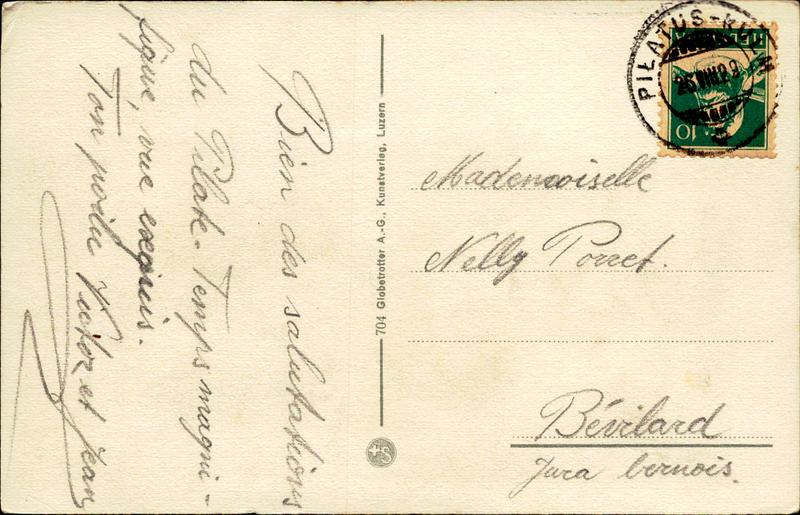 Bien des salutations
du Pilate. Temps magni-
fique, vue exquis.
Ton poilu Victor et Jean
704 Globetrotter A.-G., Kunstverlag, Luzern
PILATUS-KULM
26.VIII.29
10
Mademoiselle
Nelly Porret.
Bévilard
Jura bernois.